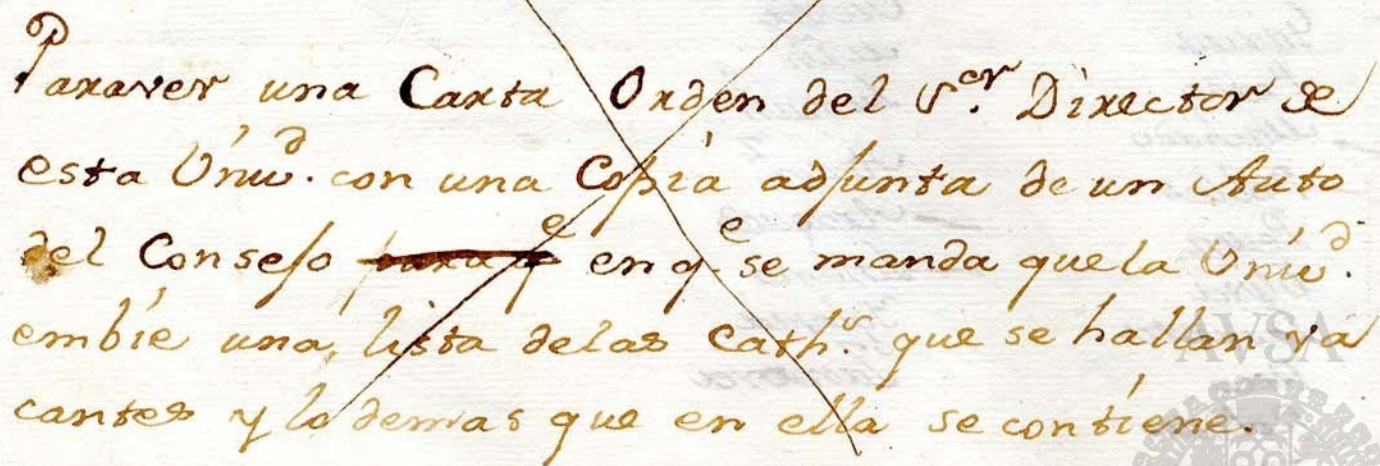 Paraver una Carta Orden del S.er Director de
esta Univ.d con una Copia adjunta de un Auto
del Consejo para q.e en q.e se manda que la Univ.d
embie una lista delas Cath.s que se hallan va
cantes y lo demas que en ella se contiene.
AVSA